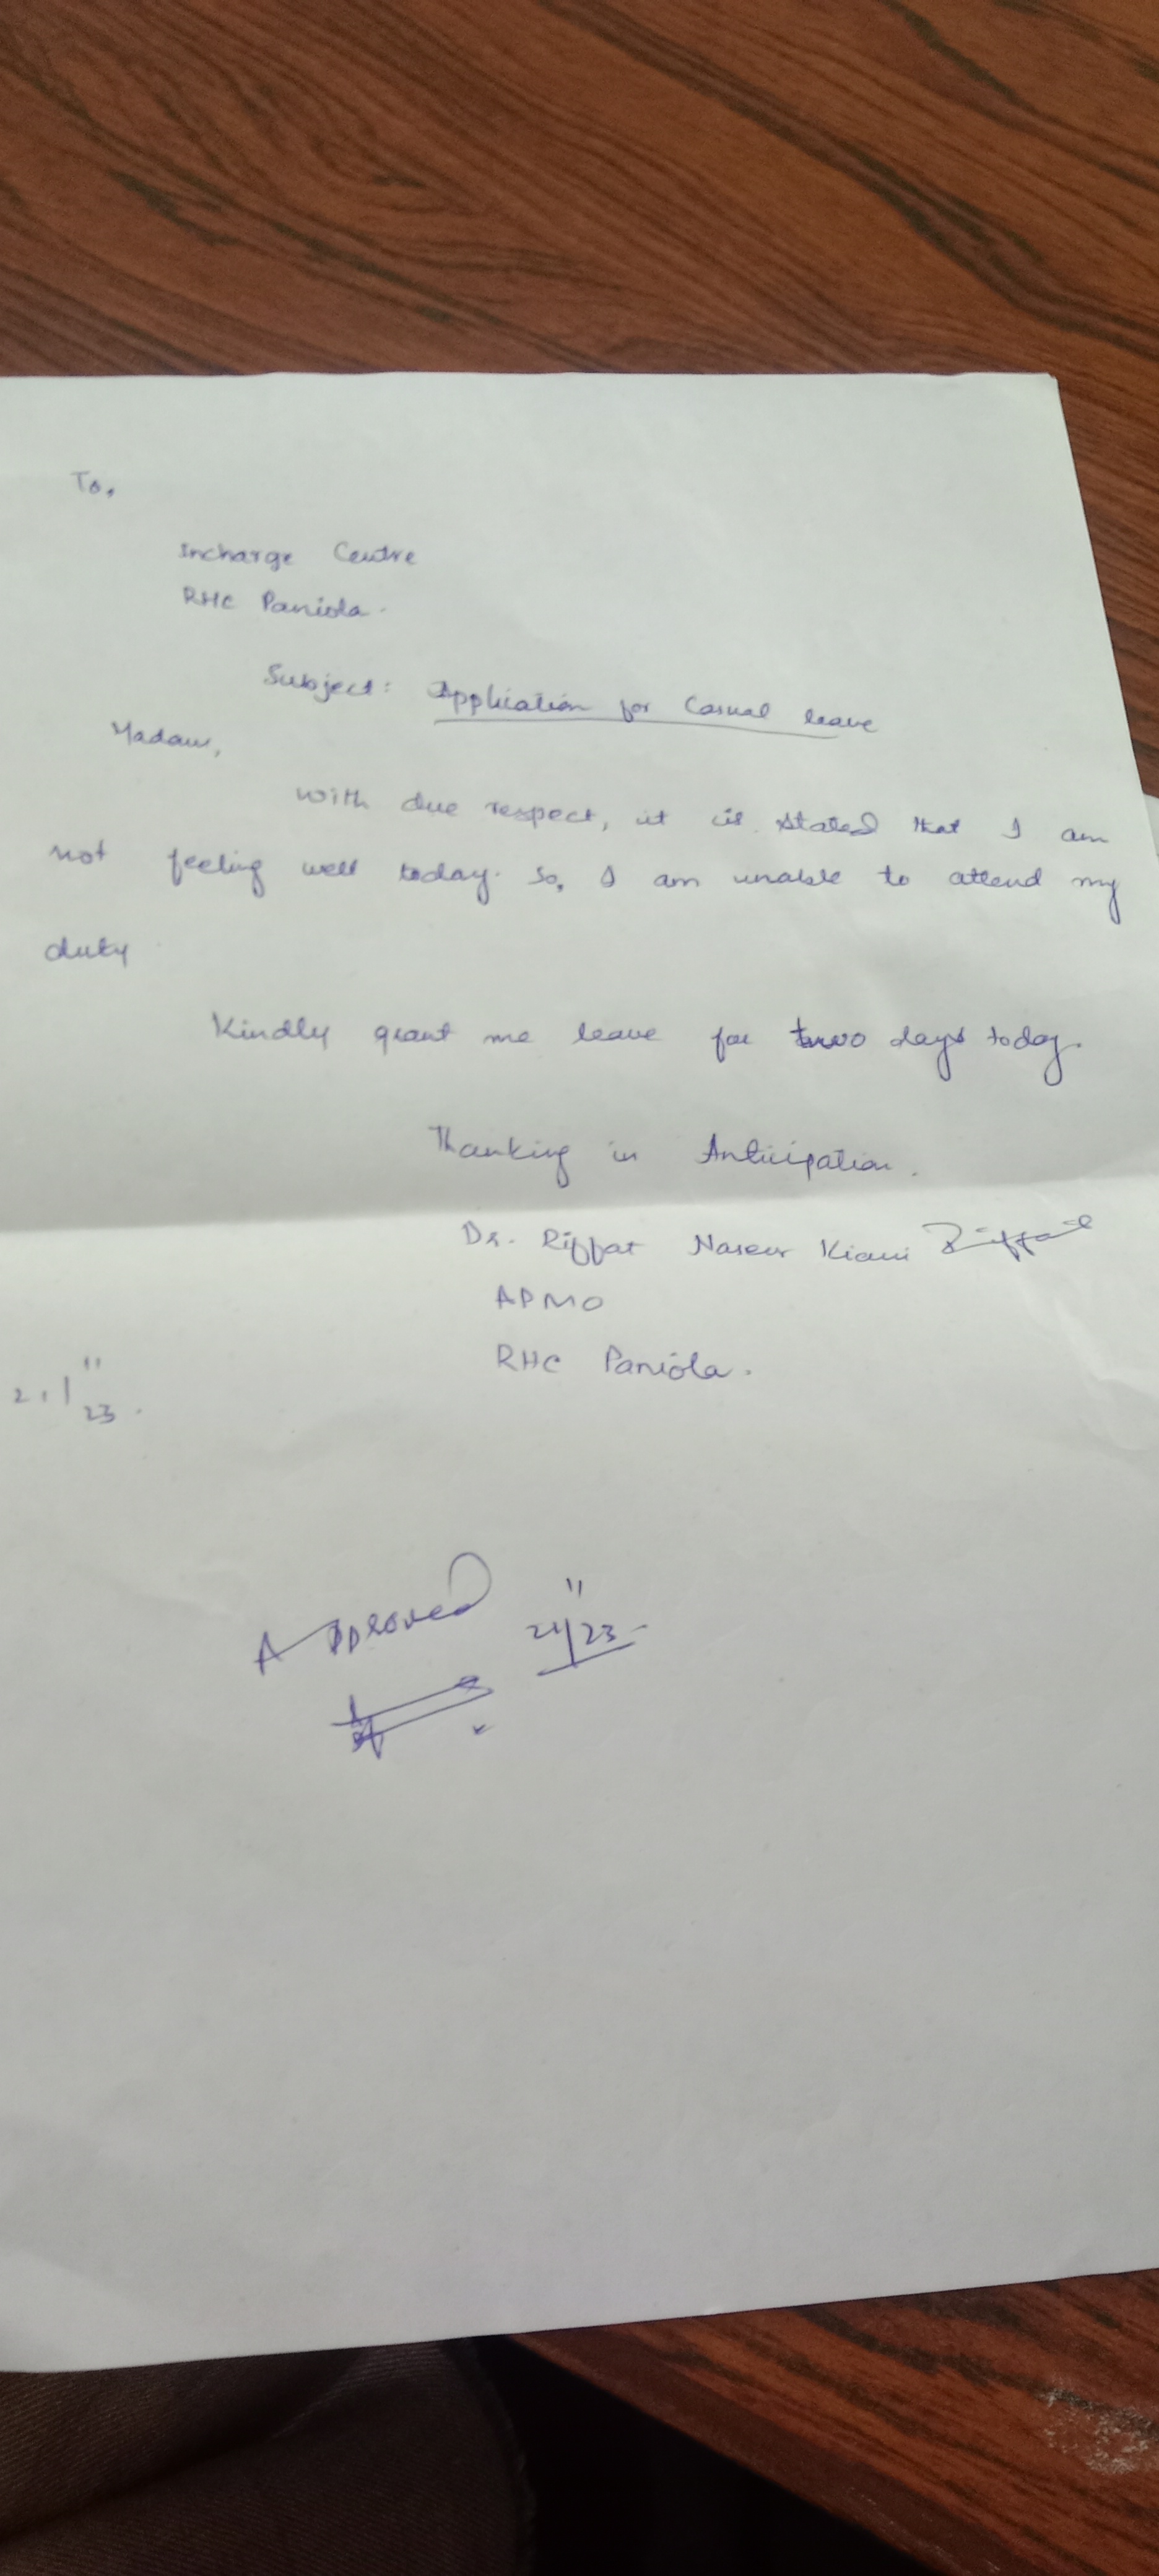 To,
Incharge Centre
RHC Paniola.
Subject: Application for Casual leave
Madam,
with due respect, it is stated that I am
not feeling well today. So, I am unable to attend my
duty
Kindly grant me leave for two days today.
Thanking in Anticipation.
Dr. Riffat Naseer Kiani Riffat
APMO
RHC Paniola.
21/11/23.
Approved 21/11/23